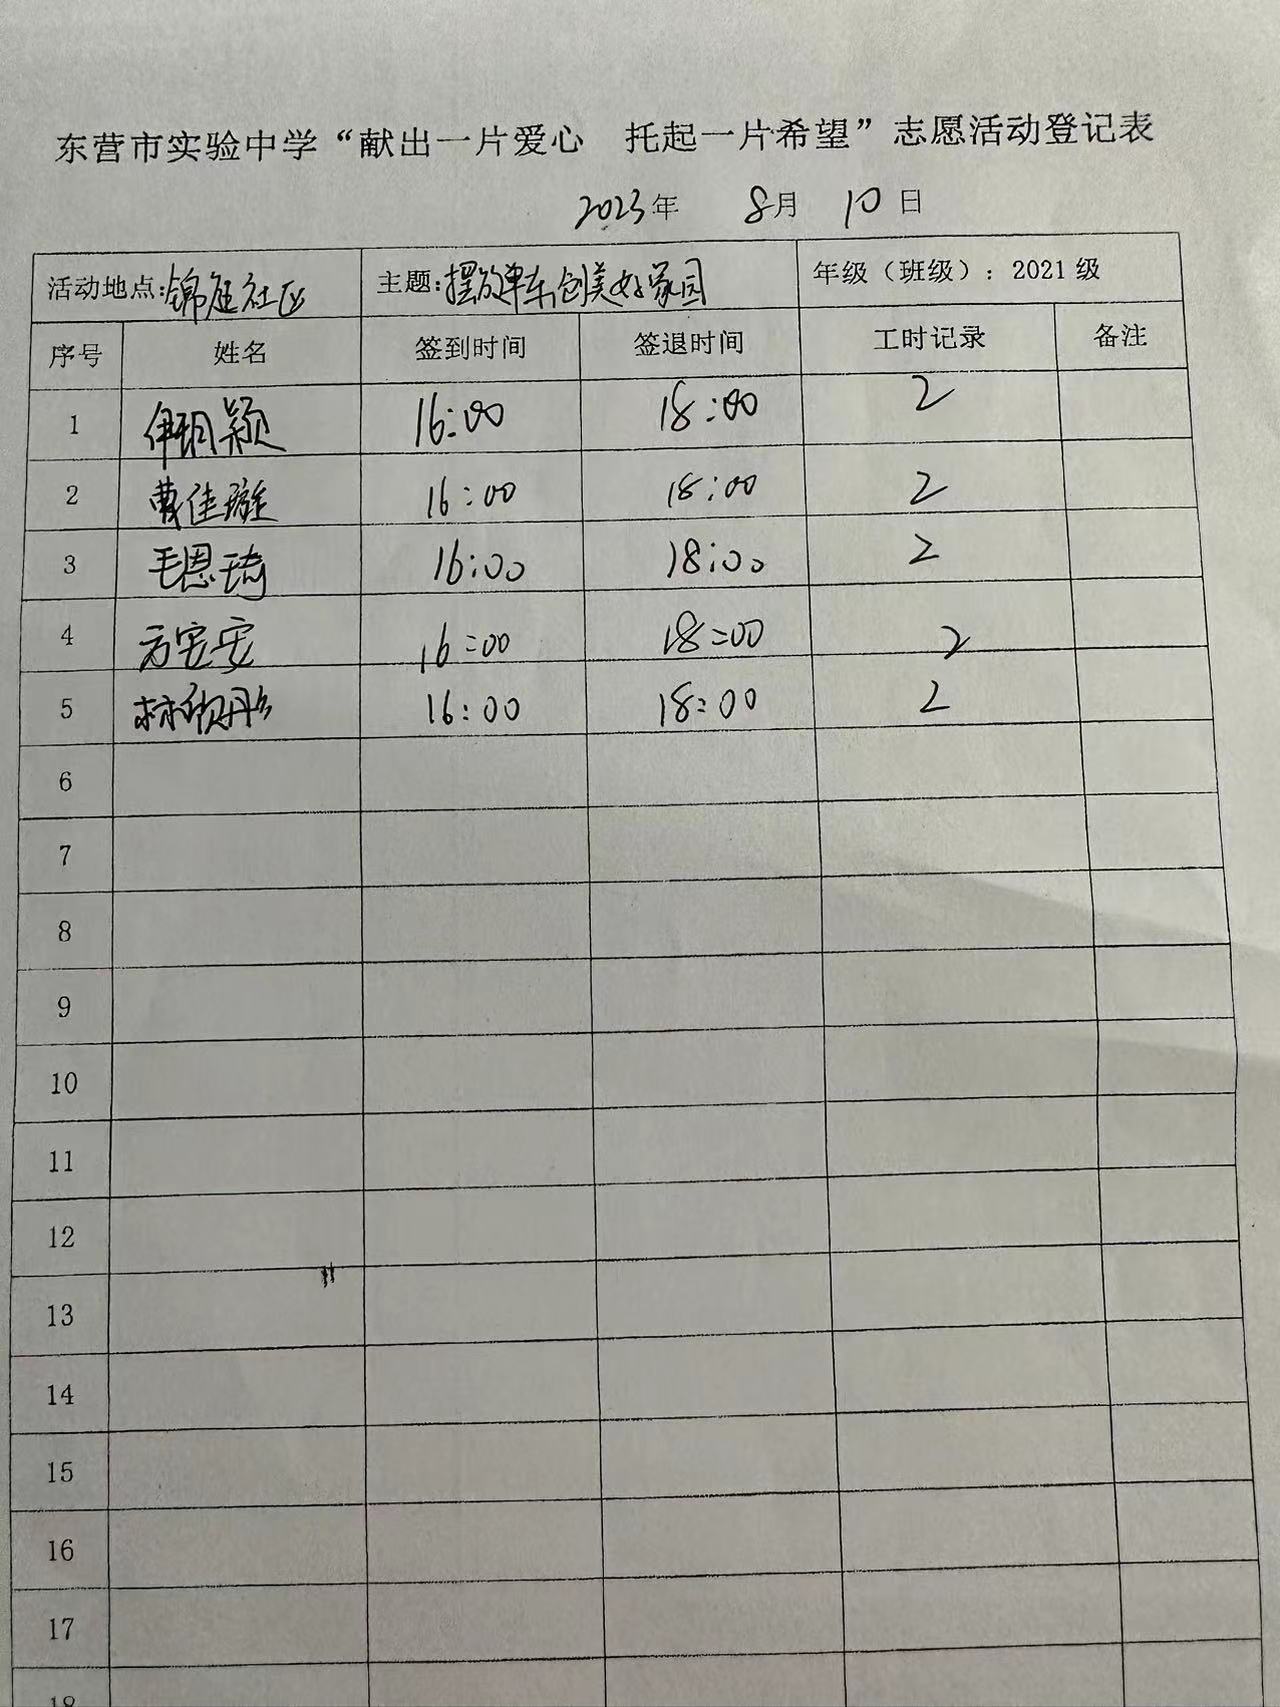 东营市实验中学“献出一片爱心 托起一片希望”志愿活动登记表
2023年 8月 10日
活动地点:锦庭社区 主题:摆放单车创美好家园 年级（班级）: 2021级
序号 姓名 签到时间 签退时间 工时记录 备注
1 伊玥颖 16:00 18:00 2
2 曹佳璇 16:00 18:00 2
3 毛恩琦 16:00 18:00 2
4 方安安 16:00 18:00 2
5 16:00 18:00 2
6
7
8
9
10
11
12
13
14
15
16
17
18